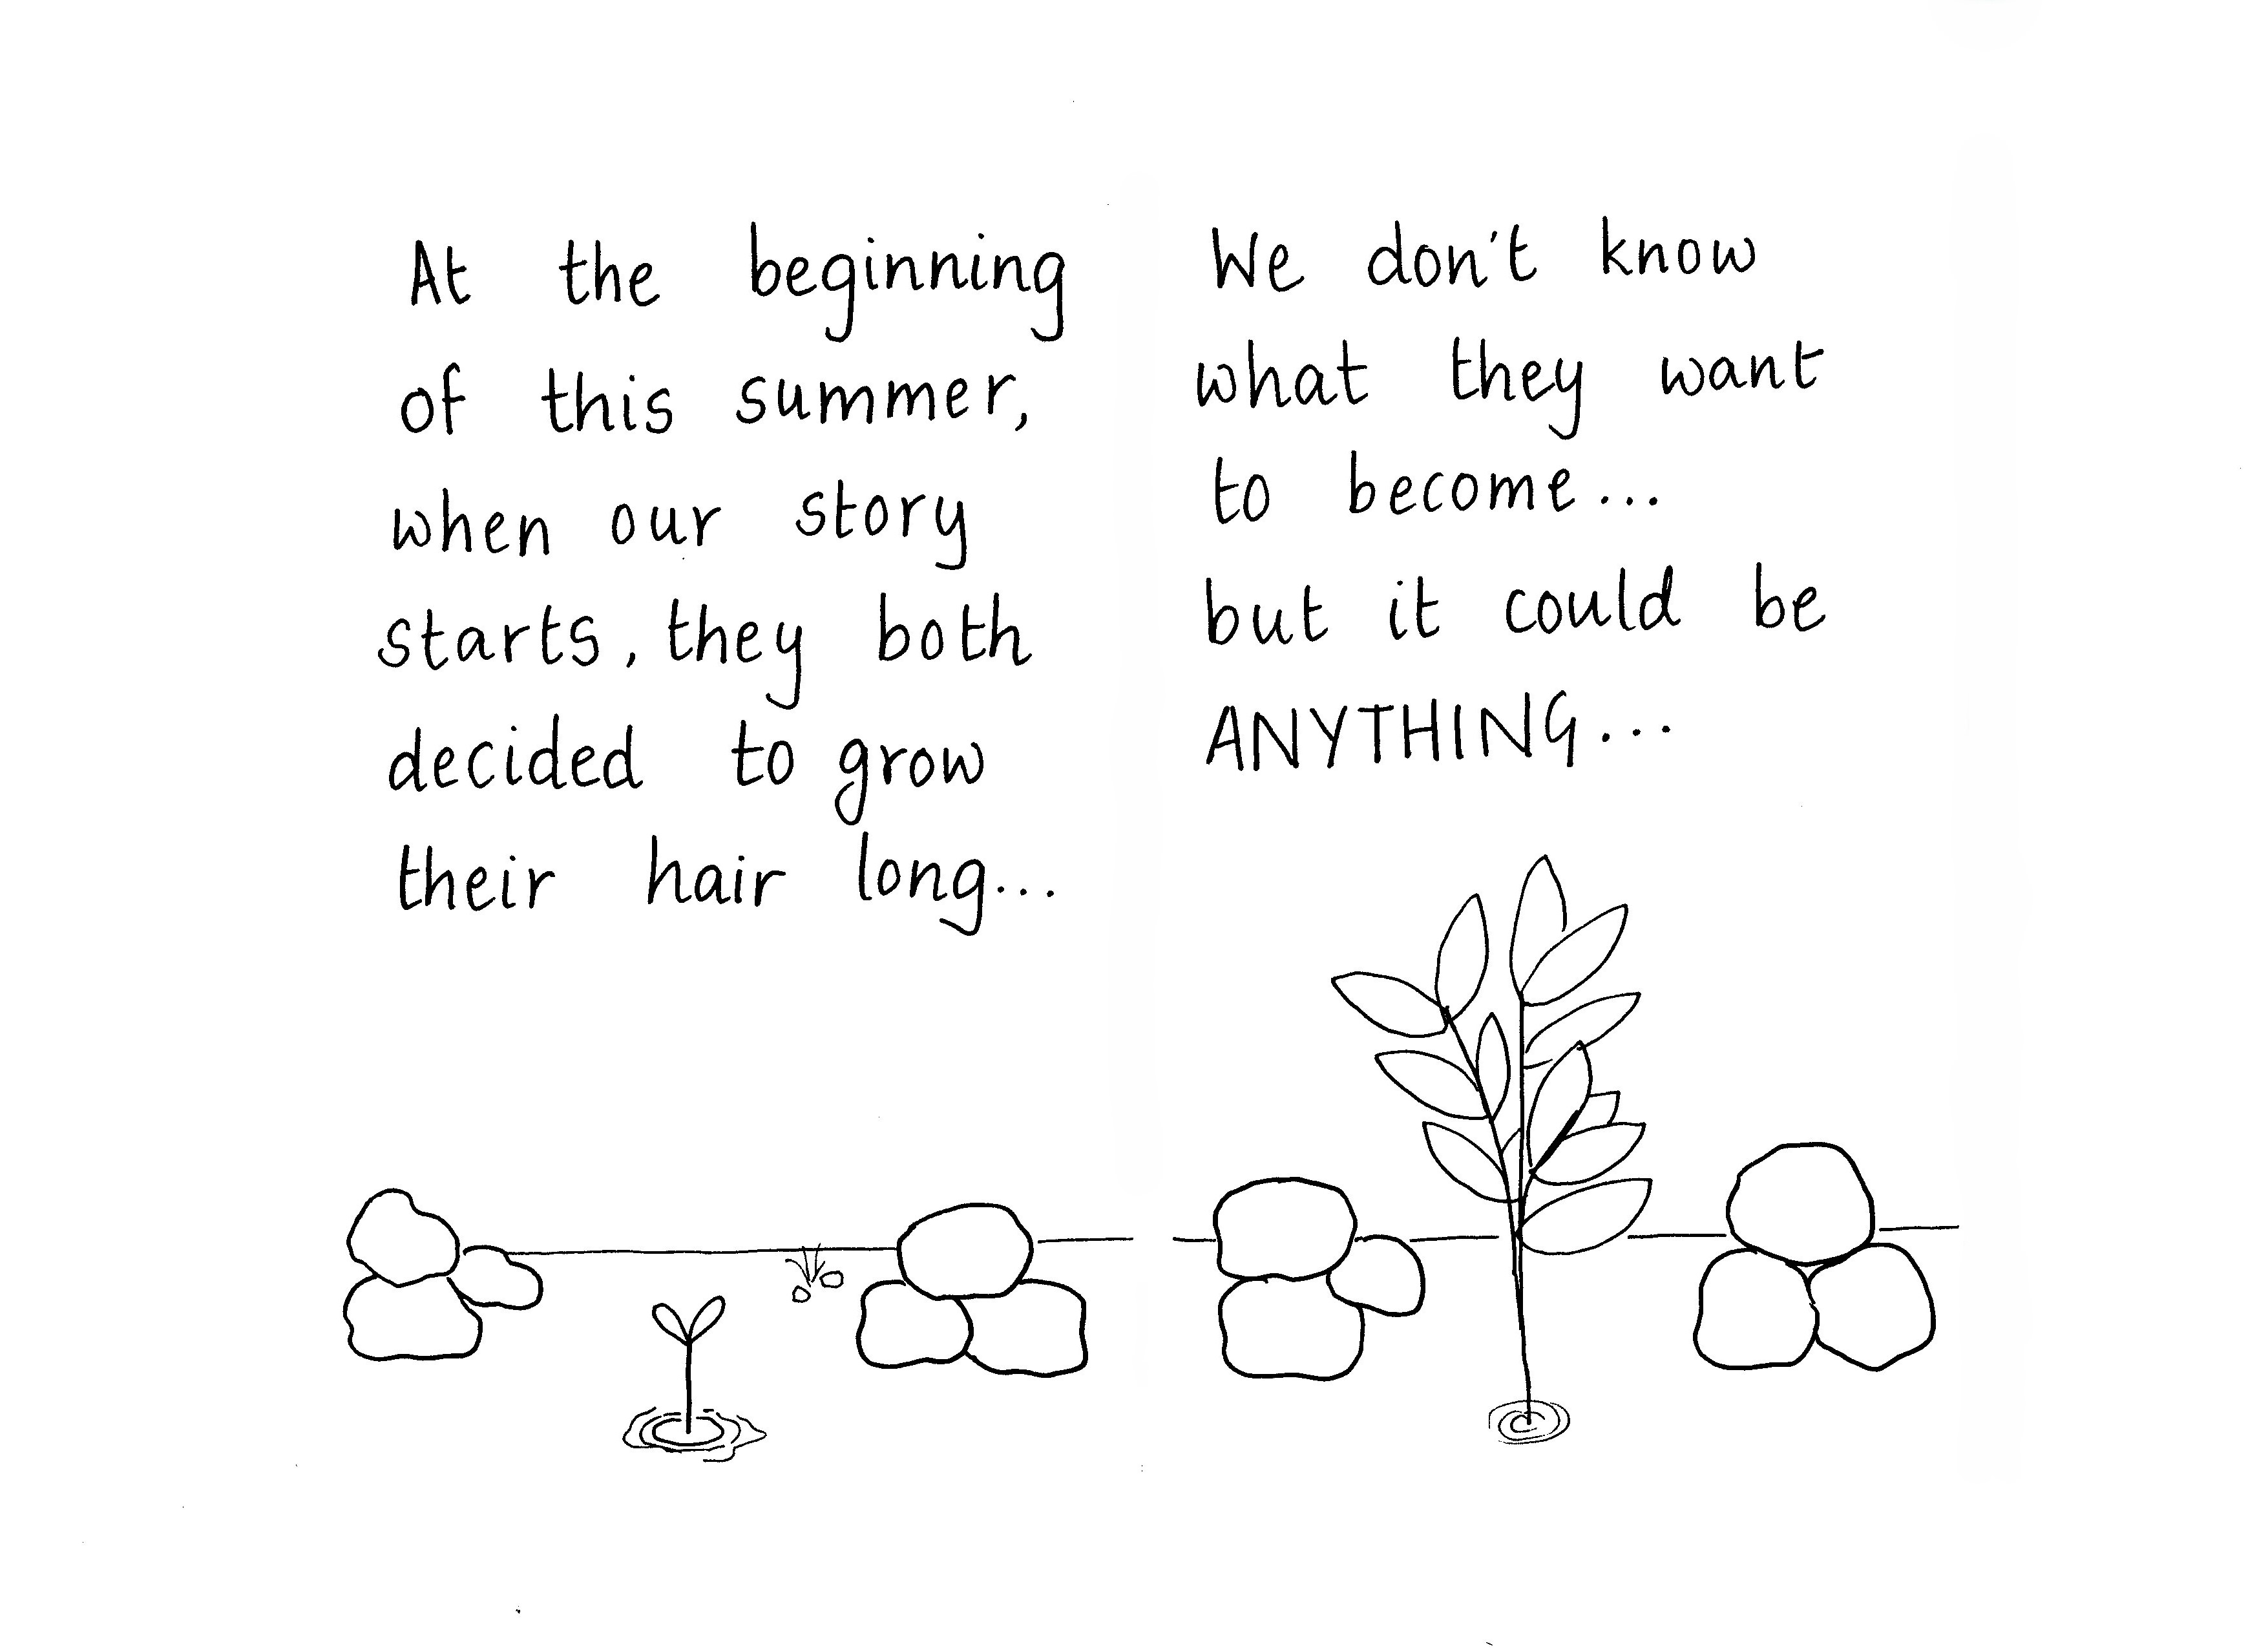 At the beginning
of this summer,
when our story
starts, they both
decided to grow
their hair long...
We don't know
what they want
to become...
but it could be
ANYTHING...